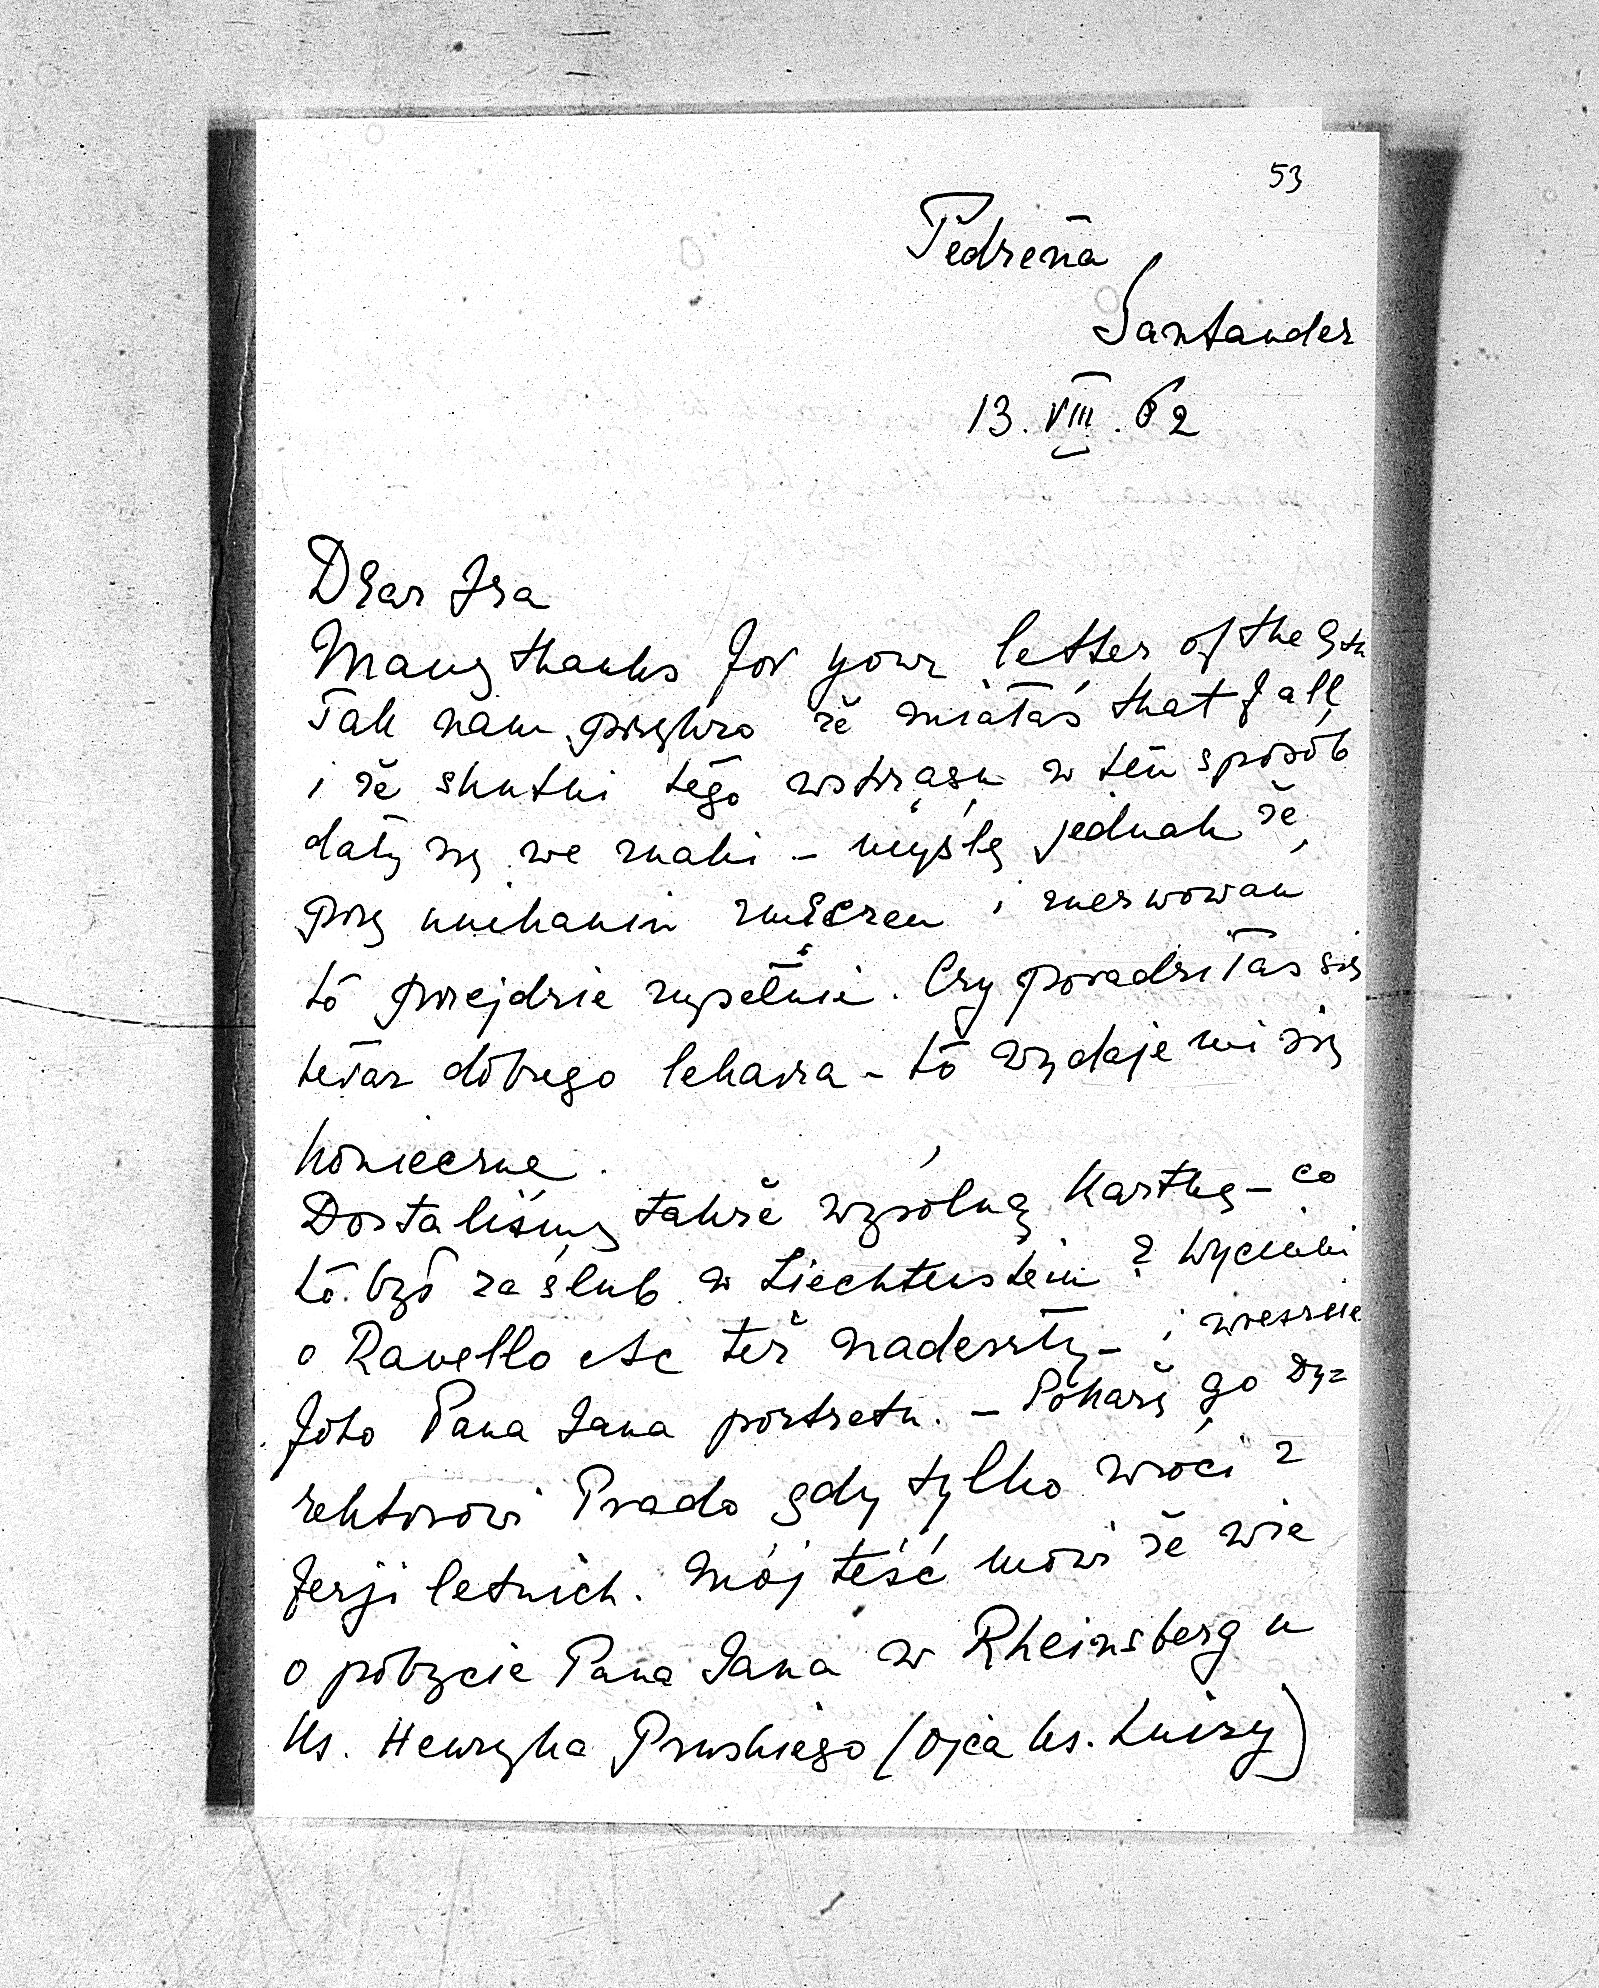 53
Pedreña
Santander
13. VIII. 62
Dear Isa
Many thanks for your letter of the 9th
Tak nam przykro że miałaś that fall
i że skutki tego wstrząsu w ten sposób
dały się we znaki – myślę jednak że,
przy unikaniu zmęczeń i zdenerwowań
to przejdzie zupełnie. Czy poradziłaś się
teraz dobrego lekarza – to wydaje mi się
konieczne.
Dostaliśmy także wspólną kartkę – co
to był za ślub w Liechtenstein? Wycinki
o Ravello etc też nadeszły – i wreszcie
foto Pana Jana portretu. – Pokażę go Dy=
rektorowi Prado gdy tylko wróci z
ferji letnich. Mój teść mówi że wie
o pobycie Pana Jana w Rheinsberg u
Ks. Henryka Pruskiego (ojca ks. Luizy)